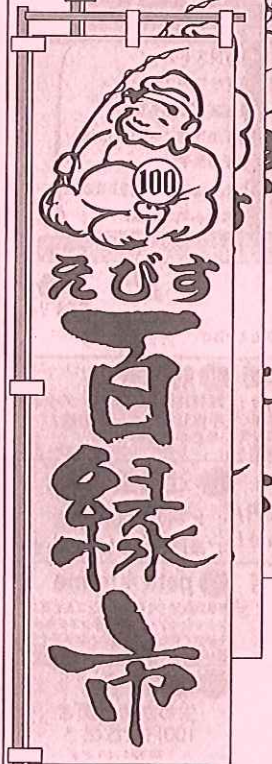 100
えびす
百縁市